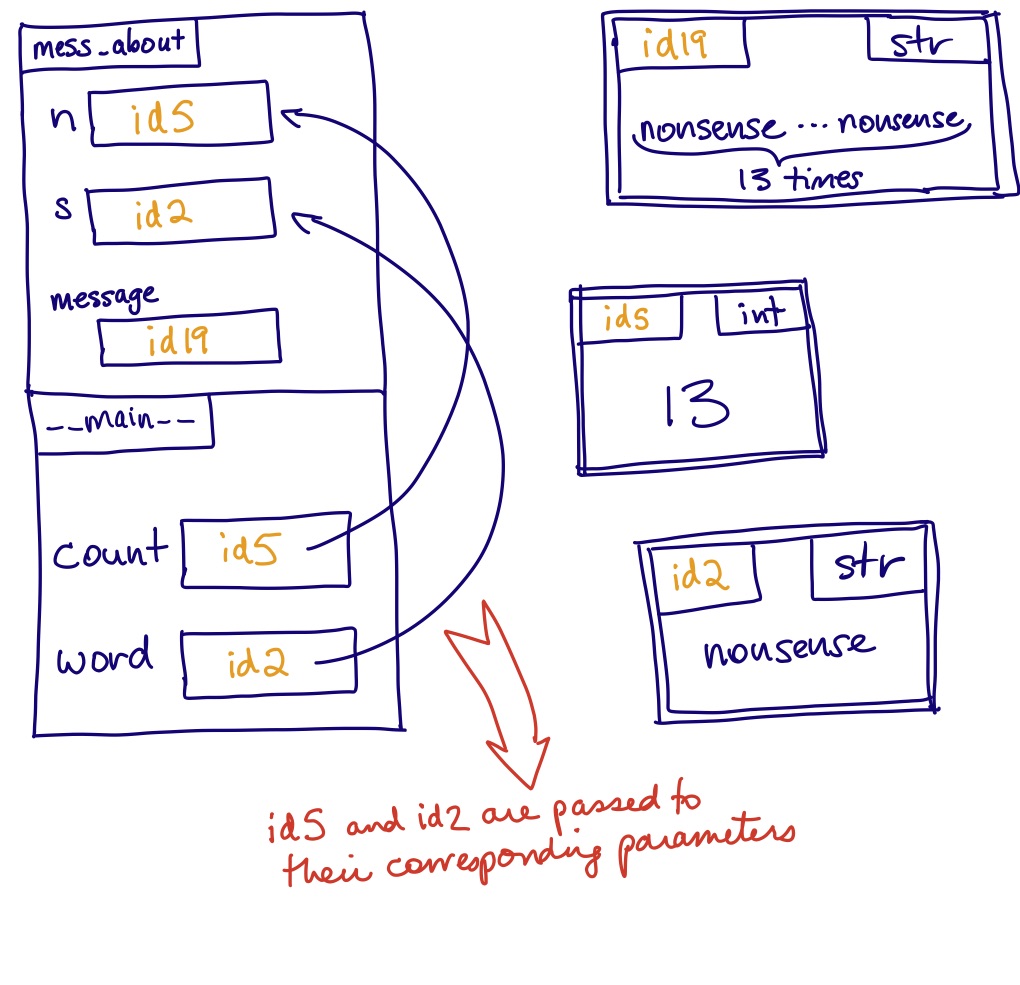 mess_about
n id5
s id2
message
id19
__main__
count id5
word id2
id19 str
nonsense ... nonsense
13 times
id5 int
13
id2 str
nonsense
id5 and id2 are passed to
their corresponding parameters